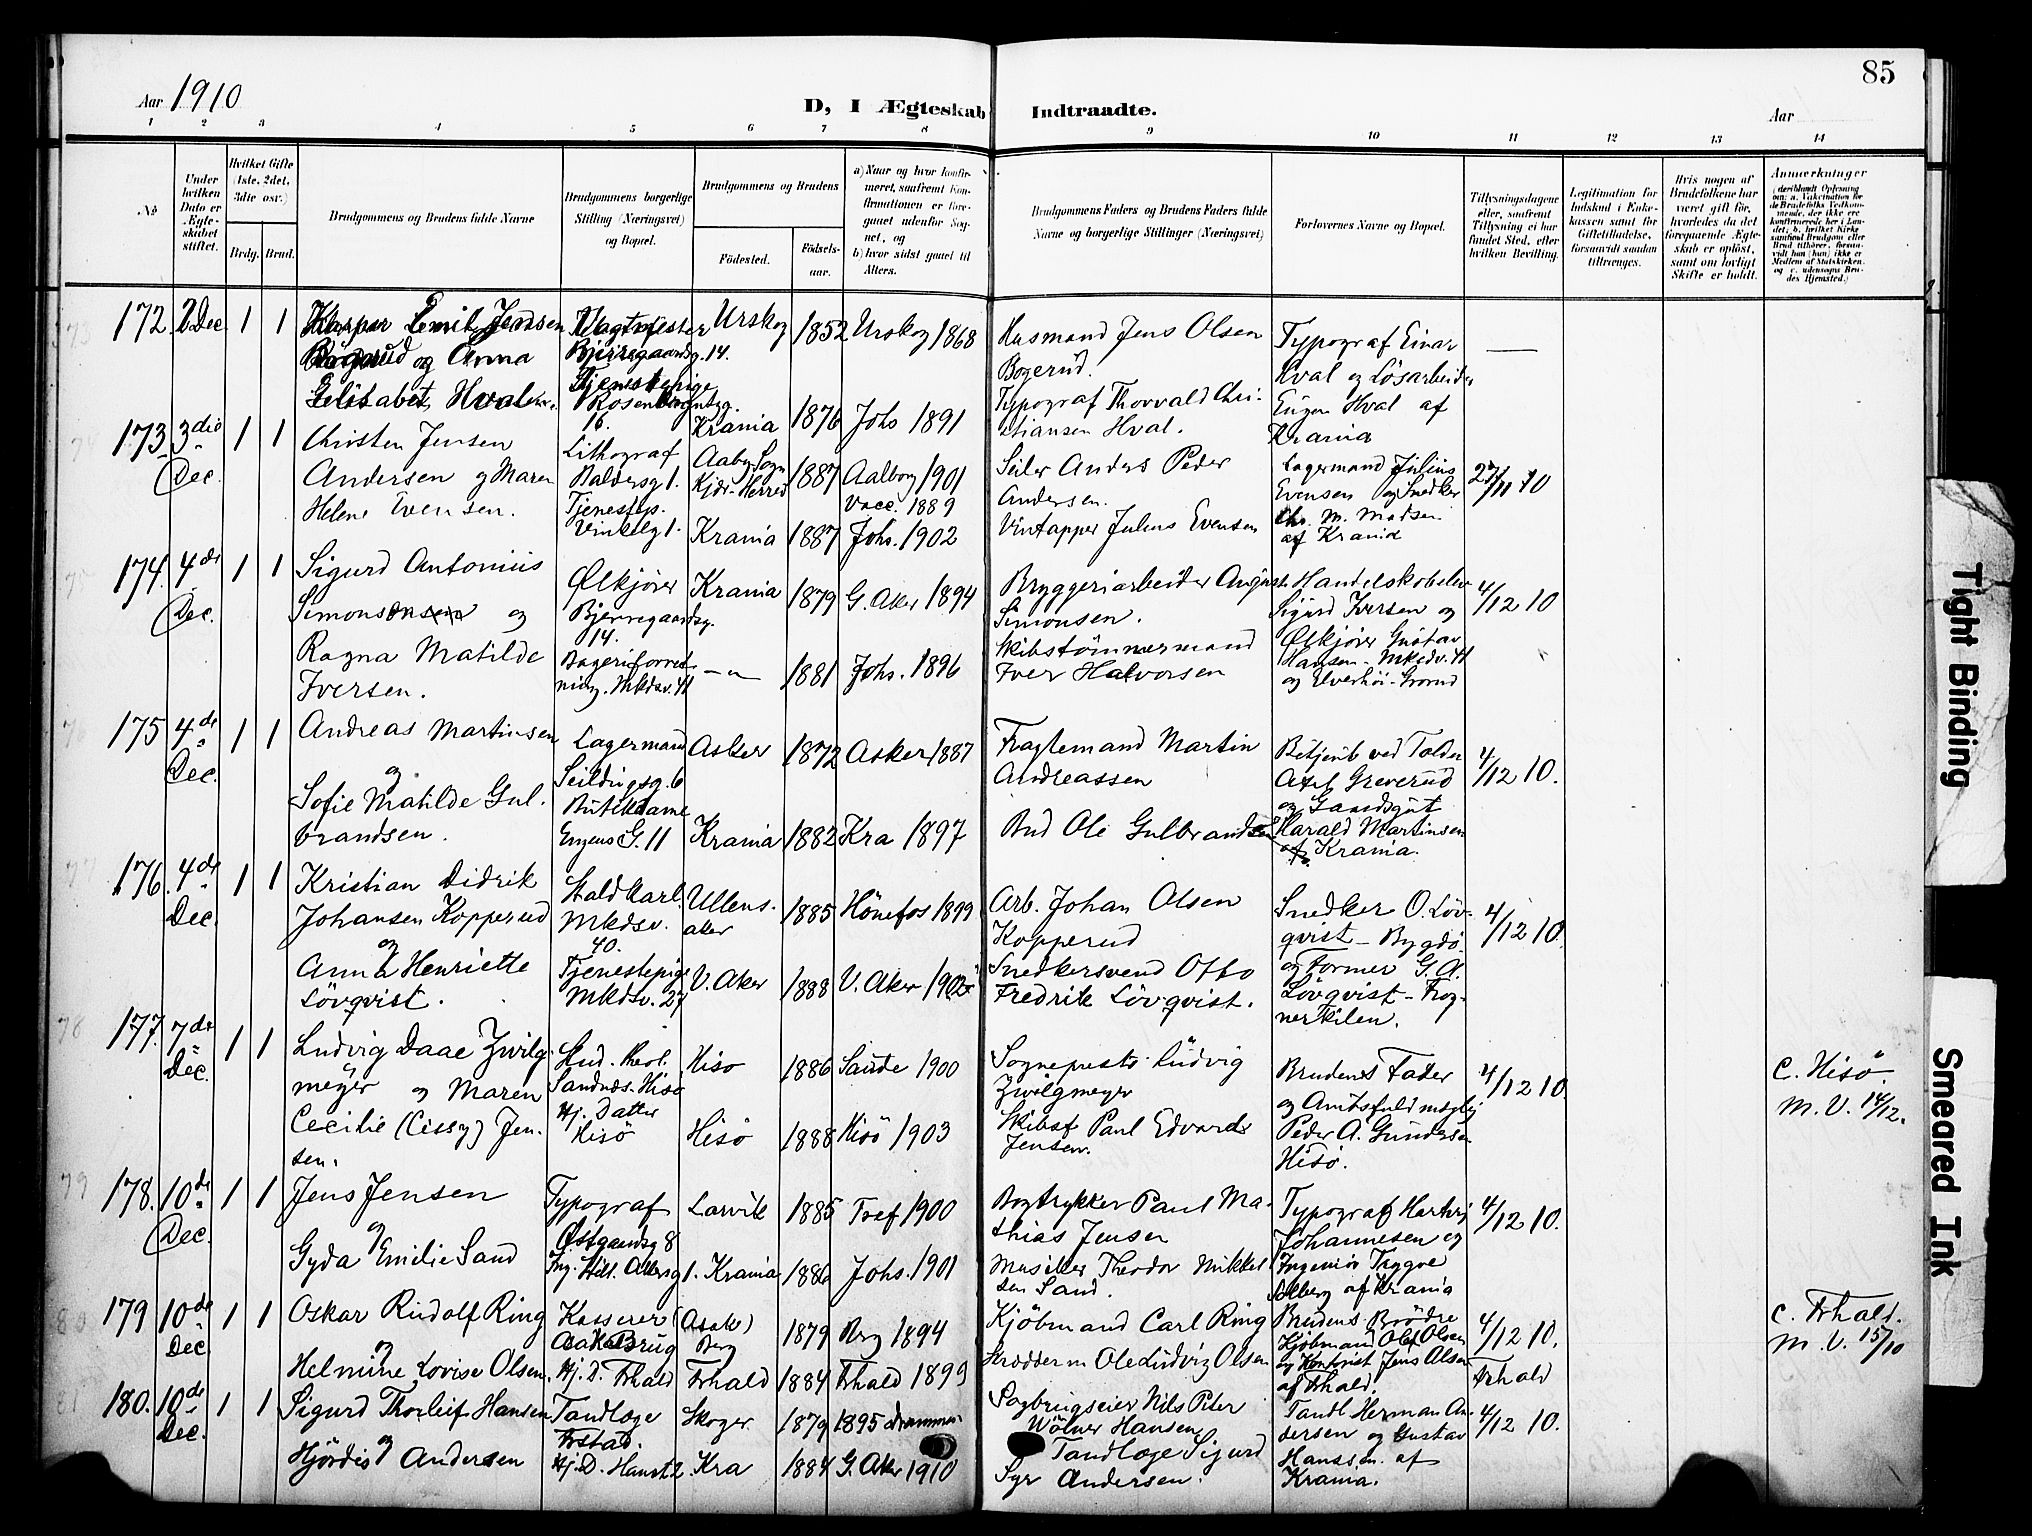 85
Aar 1910
D, I Ægteskab Indtraadte.
Aar
1 2 3 4 5 6 7 8 9 10 11 12 13 14
No
Under hvilken Dato er Ægteskabet stiftet.
Hvilket Gifte (1ste, 2det, 3die osv.)
Brdg. Brud.
Brudgommens og Brudens fulde Navne
Brudgommens borgerlige Stilling (Næringsvei) og Bopæl.
Brudgommens og Brudens
Fødested.
Fødsels-aar.
a) Naar og hvor konfirmeret, saafremt Konfirmationen er foregaaet udenfor Sognet, og
b) hvor sidst gaaet til Alters.
Brudgommens Faders og Brudens Faders fulde Navne og borgerlige Stillinger (Næringsvei)
Forlovernes Navne og Bopæl.
Tillysningsdagene eller, saafremt Tillysning ei har fundet Sted, efter hvilken Bevilling.
Legitimation for Indskud i Enkekassen samt for Giftetilladelse, forsaavidt saadan tiltrænges.
Hvis nogen af Brudefolkene har været gift før, hvorledes da det foregaaende Ægteskab er opløst, samt om lovligt Skifte er holdt.
Anmærkninger
172. 2 Dec. 1 1
Emil Jensen
og Anna
Elisabet Hval
Bjerregaardsg. 14.
Tjenestepige
16.
Urskog 1852 Urskog 1868
Krania 1876 Johs 1891
Husmand Jens Olsen
Bogerud.
Typograf Thorvald Chri-
stiansen Hval.
Typograf Einar
Hval og Løsarbeider
Eugen Hval af
Krania
173 3die Dec. 1 1
Christen Jensen
Andersen og Maren
Helene Evensen.
Lithograf
Baldersg 1.
Tjenestep.
Aaby Sogn
Kjær-Herred
1887 Aalborg 1901
Vacc. 1889
Krania 1887 Johs. 1902
Seiler Anders Peder
Andersen.
Vintapper Julius Evensen
Lagermand Julius
Evensen og Snedker
Chr. M. Madsen
af Krania
27/11 10
174. 4de Dec. 1 1
Sigurd Antonius
Simonsen og
Ragna Matilde
Iversen.
Ølkjører
Bjerregaardsg.
14.
Bageriforret-
ning. Mkdsv. 41
Krania 1879 G. Aker 1894
— " — 1881 Johs. 1896
Bryggeriarbeider August
Simonsen.
Skibstømmermand
Iver Halvorsen
Sigurd Iversen og
Ølkjører Gustav
Hansen - Mkdsv. 41
og Elverhøi - Grorud
4/12 10
175 4de Dec. 1 1
Andreas Martinsen
og
Sofie Matilde Gul-
brandsen.
Lagermand
Seildugsg. 6
Butikdame
G. 11
Asker 1872 Asker 1887
Krania 1882 Kra 1897
Fragtemand Martin
Andreassen
Bud Ole Gulbrandsen
Betjent ved Tolden
Axel Greverud
og Gaardsgut
Harald Martinsen
af Krania.
4/12 10.
176. 4de Dec. 1 1
Kristian Didrik
Johansen Kopperud
og
Anna Henriette
Lövqvist.
Staldkarl.
Mkdsv.
40.
Tjenestepige
Mkdsv. 27
Ullens-
aker
1885 Hönefos 1899
V. Aker 1888 V. Aker
Arb. Johan Olsen
Kopperud
Snedkersvend Otto
Fredrik Lövqvist.
Snedker O. Löv-
qvist - Bygdö
og Former G. A.
Lövqvist - Frog-
nerkilen.
4/12 10.
177. 7de Dec. 1 1
Ludvig Daae Zwilg-
meyer og Maren
Cecilie (Cissy) Jen-
sen.
Stud. theol.
Sandnæs - Hisö
Hj. Datter
Hisö
Hisö 1886 Saude 1900
Hisö 1888 Hisö 1903
Sogneprest Ludvig
Zwilgmeyer
Skibsf Paul Edvard
Jensen.
Brudens Fader
og Amtsfuldmægtig
Peder A. Gundersen
Hisö.
4/12 10.
C. Hisö.
M. V. 14/12.
178. 10de Dec. 1 1
Jens Jensen
og
Gyda Emilie Sand
Typograf
Østgaardsg 8
Larvik 1885 Tref 1900
Krania 1886 Johs. 1901
Bogtrykker Paul Ma-
thias Jensen
Musiker Theodor Mikkel
sen Sand.
Typograf
Johannesen og
Ingeniör Trygve
Solberg af Krania
4/12 10.
179 10de Dec. 1 1
Oskar Rudolf Ring
og
Helmine Lovise Olsen
Kasserer
Asak Brug
Hj. D. Frhald
(Asak)
Berg
1879 Berg 1894
Frhald 1884 Frhald 1899
Kjöbmand Carl Ring
Skrædderm Ole Ludvig Olsen
Brudens Brödre
Kjöbmand Olaf Olsen
og Kontorist Jens Olsen
af Frhald.
4/12 10.
Frhald
C. Frhald.
M. V. 15/10
180. 10de Dec. 1 1
Sigurd Thorleif Hansen
og
Hjördis Andersen
Tandlæge
Frstad.
Skoger 1879 1895 Drammen
Kra 1884 G. Aker 1910
Sagbrugseier Nils Peter
Wölner Hansen
Tandlæge Sigurd
Syr Andersen.
Tandl Herman An-
dersen og Gustav
Hanssen af
Krania.
4/12 10.
Tight Binding
Smeared Ink